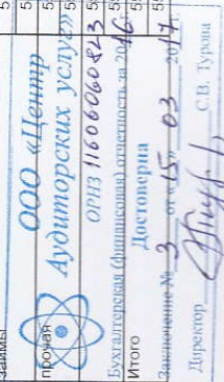 займы
ООО «Центр
прочая
Аудиторских услуг»
ОРНЗ 11606060823
Бухгалтерская (финансовая) отчетность за 2016г.
Итого
Достоверна
Заключение № 3 от «15» 03 2017 г.
Директор С.В. Турова